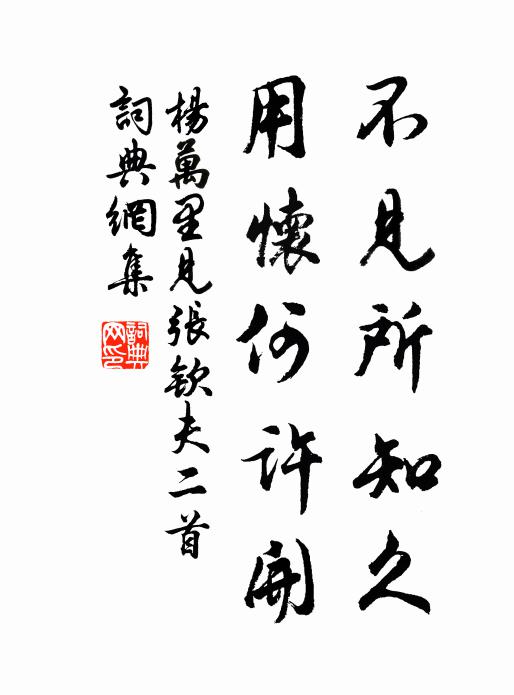 不見所知久
用懷何許開
楊萬里見張欽夫二首
詞典網集
詞典
网印